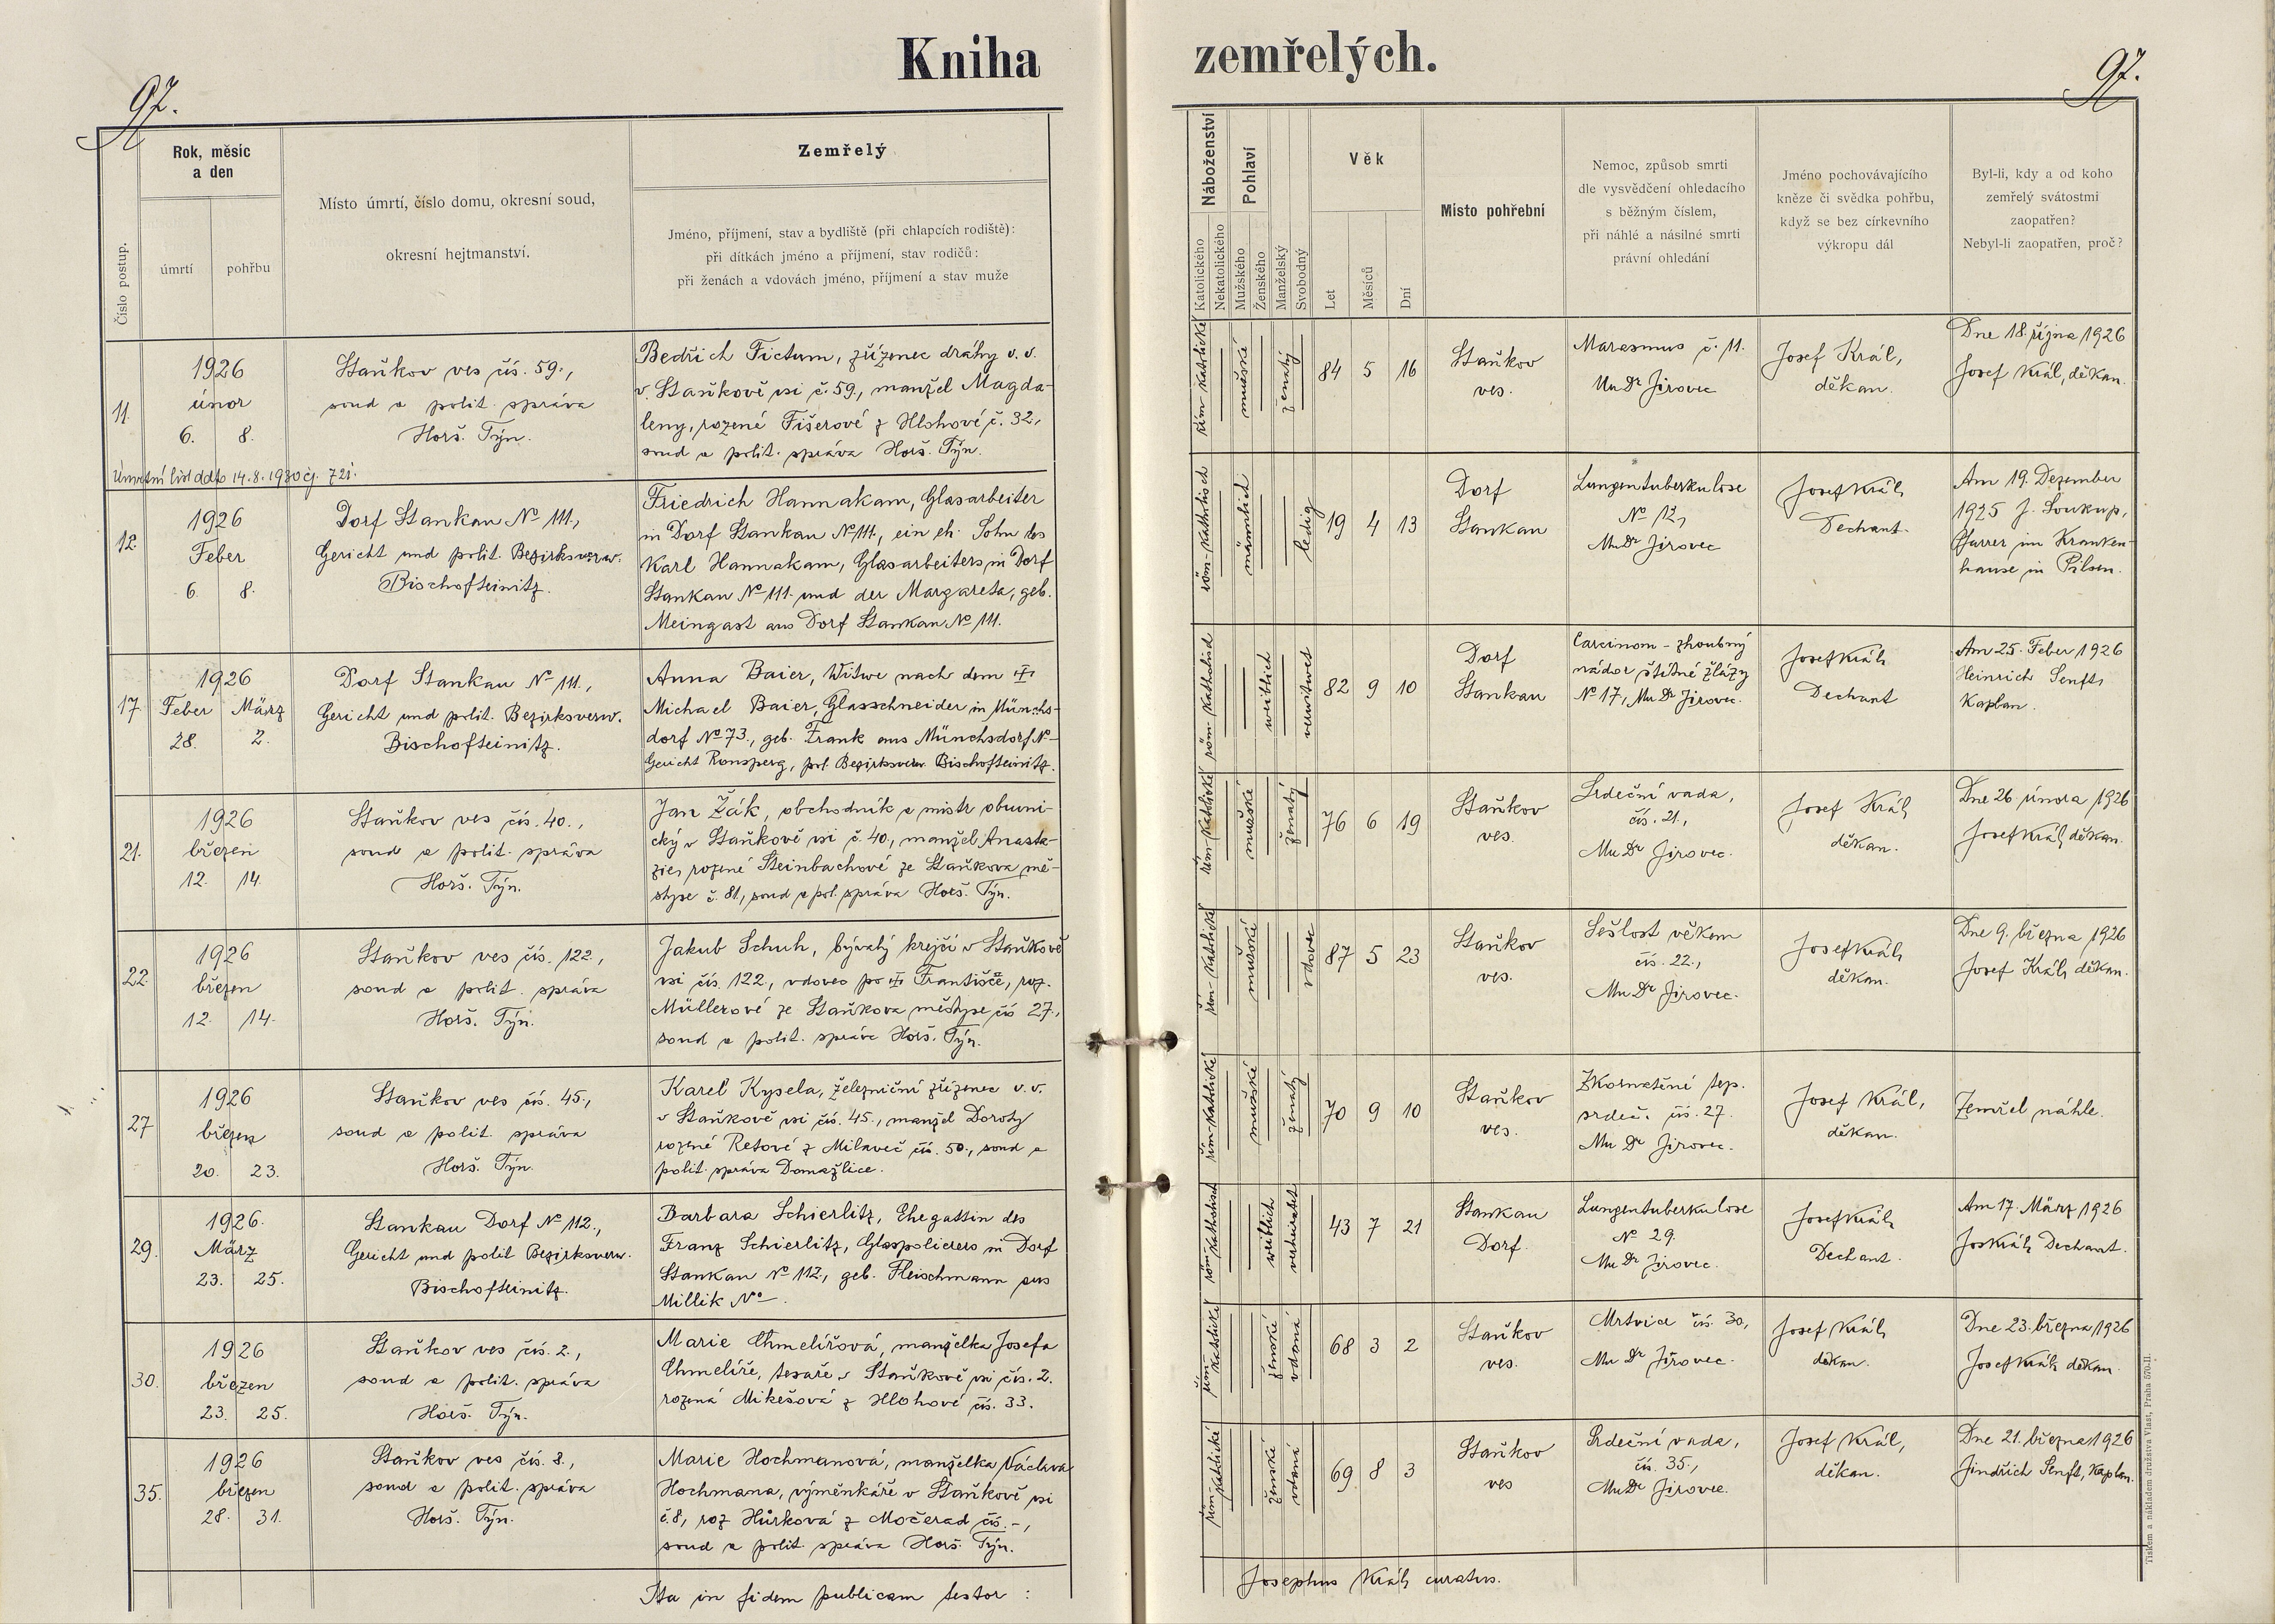 Kniha zemřelých.
97.
97.
Číslo postup.
Rok, měsíc
a den
úmrtí
pohřbu
Místo úmrtí, číslo domu, okresní soud,
okresní hejtmanství.
Zemřelý
Jméno, příjmení, stav a bydliště (při chlapcích rodiště):
při dítkách jméno a příjmení, stav rodičů:
při ženách a vdovách jméno, příjmení a stav muže
Náboženství
Katolického
Nekatolického
Pohlaví
Mužského
Ženského
Manželský
Svobodný
Věk
Let
Měsíců
Dní
Místo pohřební
Nemoc, způsob smrti
dle vysvědčení ohledacího
s běžným číslem,
při náhlé a násilné smrti
právní ohledání
Jméno pochovávajícího
kněze či svědka pohřbu,
když se bez církevního
výkropu dál
Byl-li, kdy a od koho
zemřelý svátostmi
zaopatřen?
Nebyl-li zaopatřen, proč?
11.
1926
únor
6. 8.
Staňkov ves čís. 59.,
soud a polit. správa
Horš. Týn.
Bedřich Fictum, zřízenec dráhy v. v.
v Staňkově vsi č. 59., manžel Magda-
leny, rozené Fišerové z Hlohové č. 32,
soud a polit. správa Horš. Týn.
řím-katolické
mužské
ženatý
84 5 16
Staňkov
ves.
Marasmus č. 11.
MuDr Jirovec
Josef Král,
děkan.
Dne 18. října 1926
Josef Král, děkan.
Úmrtní list ddto 14.8.1930 čj. 721.
12.
1926
Feber
6. 8.
Dorf Stankau No 111.,
Gericht und polit. Bezirksverw.
Bischofteinitz.
Friedrich Hannakam, Glasarbeiter
in Dorf Stankau No 111., ein eh. Sohn des
Karl Hannakam, Glasarbeiters in Dorf
Stankau No 111. und der Margareta, geb.
Meingast aus Dorf Stankau No 111.
röm-katholisch
männlich
ledig
19 4 13
Dorf
Stankau
Lungentuberkulose
No 12,
MuDr Jirovec
Josef Král,
Dechant.
Am 19. Dezember
1925 J. Soukup,
Pfarrer im Kranken-
hause in Pilsen.
17.
1926
Feber März
28. 2.
Dorf Stankau No 111.,
Gericht und polit. Bezirksverw.
Bischofteinitz.
Anna Baier, Witwe nach dem
Michael Baier, Glasschneider in Münchs-
dorf No 73., geb. Frank aus Münchsdorf No -
Gericht Ronsperg, pol. Bezirksverw. Bischofteinitz.
röm-katholisch
weiblich
verwitwet
82 9 10
Dorf
Stankau
Carcinom - zhoubný
nádor štítné žlázy
No 17, MuDr Jirovec.
Josef Král,
Dechant
Am 25. Feber 1926
Heinrich Senft,
Kaplan.
21.
1926
březen
12. 14.
Staňkov ves čís. 40.,
soud a polit. správa
Horš. Týn.
Jan Žák, obchodník a mistr obuvni-
cký v Staňkově vsi č. 40., manžel Anasta-
zie, rozené Steinbachové ze Staňkova mě-
styse č. 81., soud a pol. správa Horš. Týn.
řím-katolické
mužské
ženatý
76 6 19
Staňkov
ves.
Srdeční vada,
čís. 21.,
MuDr Jirovec.
Josef Král,
děkan.
Dne 26. února 1926
Josef Král, děkan.
22.
1926
březen
12. 14.
Staňkov ves čís. 122.,
soud a polit. správa
Horš. Týn.
Jakub Schuh, bývalý krejčí v Staňkově
vsi čís. 122., vdovec po Františce, roz.
Müllerové ze Staňkova městyse čís 27.,
soud a polit. správa Horš. Týn.
řím-katolické
mužské
vdovec
87 5 23
Staňkov
ves.
Sešlost věkem
čís. 22.,
MuDr Jirovec.
Josef Král,
děkan.
Dne 9. března 1926
Josef Král, děkan.
27
1926
březen
20. 23.
Staňkov ves čís. 45.,
soud a polit. správa
Horš. Týn.
Karel Kysela, železniční zřízenec v. v.
v Staňkově vsi čís. 45., manžel Doroty
rozené Retové z Milaveč čís. 50., soud a
polit. správa Domažlice.
řím-katolické
mužské
ženatý
70 9 10
Staňkov
ves.
Zkornatění tep.
srdeč. čís. 27.
MuDr Jirovec.
Josef Král,
děkan.
Zemřel náhle.
29.
1926.
März
23. 25.
Stankau Dorf No 112.,
Gericht und polit Bezirksverw.
Bischofteinitz.
Barbara Schierlitz, Ehegattin des
Franz Schierlitz, Glaspolierers in Dorf
Stankau No 112., geb. Fleischmann aus
Millik No -.
röm-katholisch
weiblich
verheiratet
43 7 21
Stankau
Dorf.
Lungentuberkulose
No 29.
MuDr Jirovec.
Josef Král,
Dechant.
Am 17. März 1926
Jos Král, Dechant.
30.
1926
březen
23. 25.
Staňkov ves čís. 2.,
soud a polit. správa
Horš. Týn.
Marie Chmelířová, manželka Josefa
Chmelíře, tesaře v Staňkově vsi čís. 2.
rozená Mikešová z Hlohové čís. 33.
řím-katolické
ženské
vdaná
68 3 2
Staňkov
ves.
Mrtvice čís. 30,
MuDr Jirovec.
Josef Král,
děkan.
Dne 23. března 1926
Josef Král, děkan.
35.
1926
březen
28. 31.
Staňkov ves čís. 8.,
soud a polit. správa
Horš. Týn.
Marie Hochmanová, manželka Václava
Hochmana, výměnkáře v Staňkově vsi
č. 8, roz Hůrková z Močerad čís. -,
soud a polit. správa Horš. Týn.
řím-katolické
ženské
vdaná
69 8 3
Staňkov
ves
Srdeční vada,
čís. 35.,
MuDr Jirovec.
Josef Král,
děkan.
Dne 21. března 1926
Jindřich Senft, kaplan.
Ita in fidem publicam testor :
Josephus Král, curatus.
Tiskem a nákladem družstva Vlast, Praha 570-II.